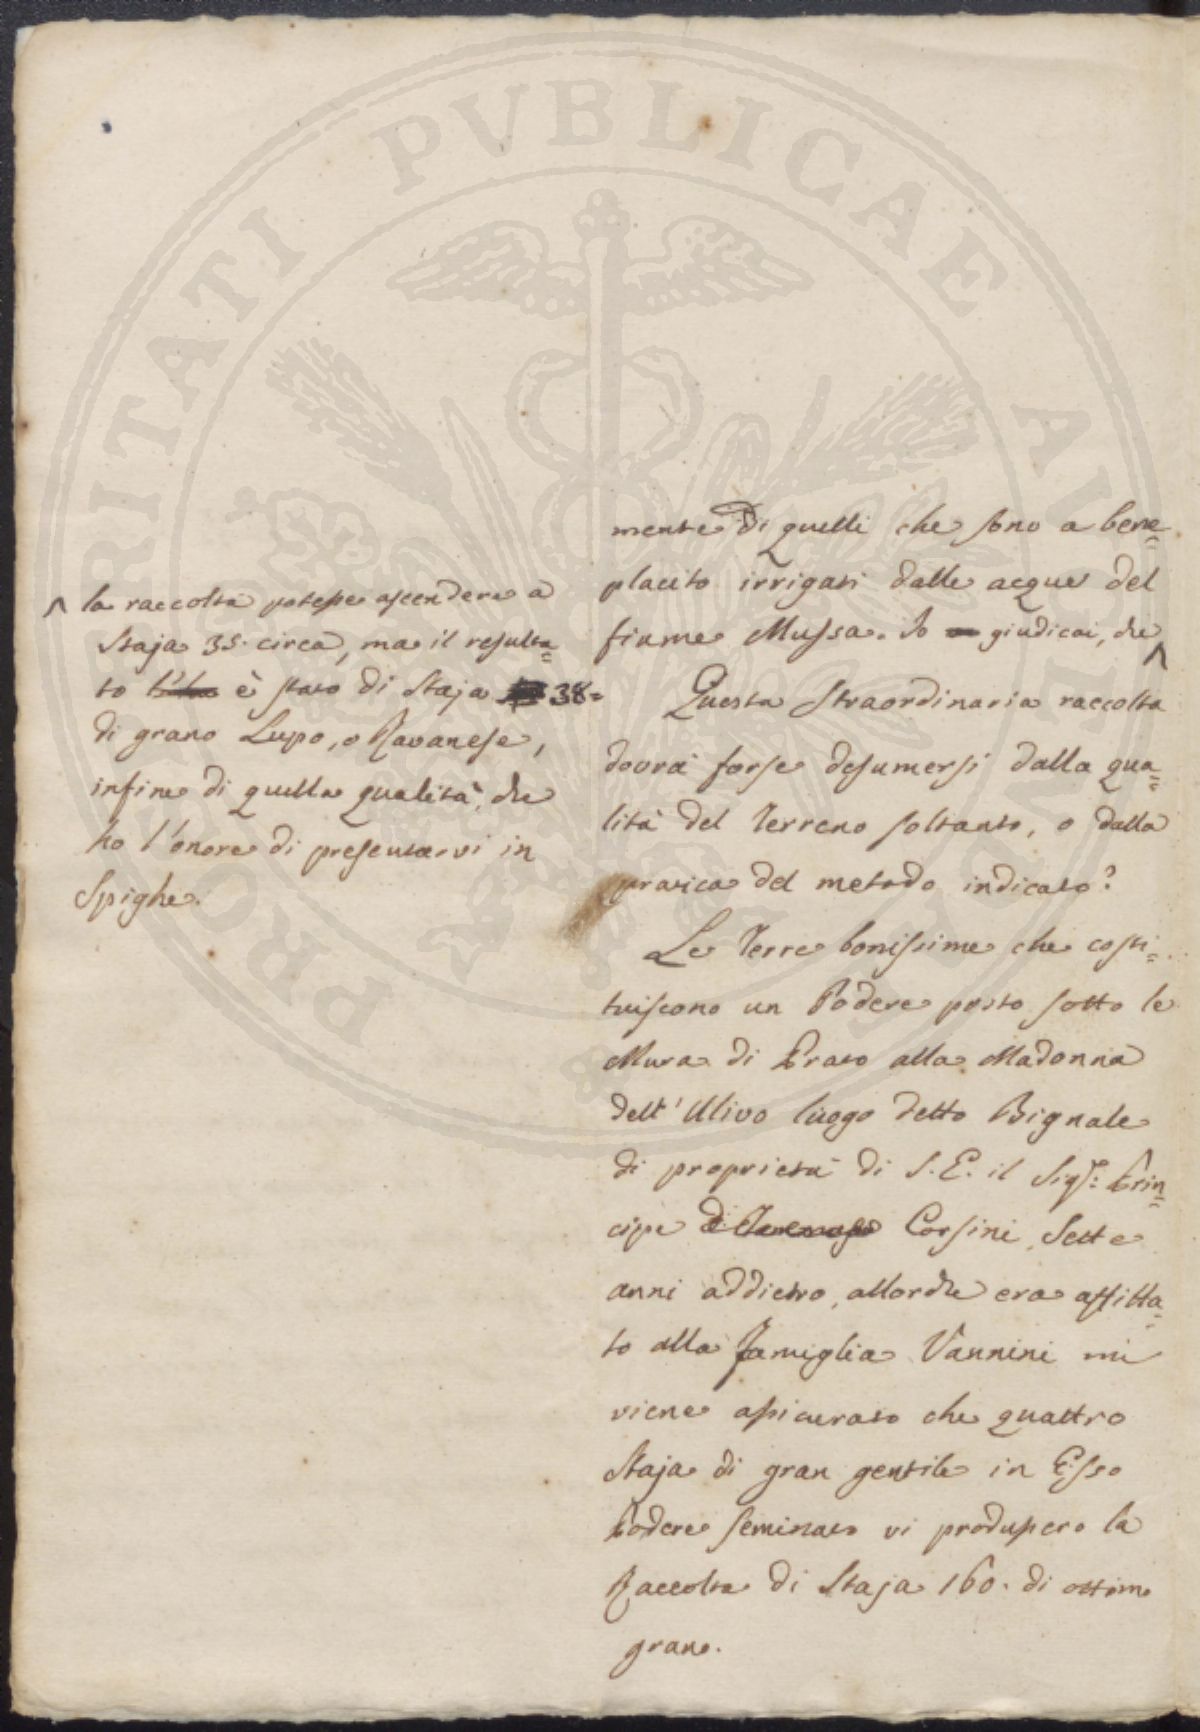 mente di quelli che sono a bene=
placito irrigati dalle acque del
fiume Mussa. Io giudicai, che ^
^ la raccolta potesse ascendere a
Staja 35. circa, ma il resulta=
to è stato di Staja 38=
di grano Lupo, o Ravanese,
infine di quella qualità, che
ho l'onore di presentarvi in
Spighe.
Questa straordinaria raccolta
dovrà forse desumersi dalla qua=
lità del Terreno soltanto, o dalla
pratica del metodo indicato?
Le Terre bonissime che costi=
tuiscono un Podere posto sotto le
Mura di Prato alla Madonna
dell'Ulivo luogo detto Bignale
di proprietà di S. E. il Sigr: Prin=
cipe Corsini, Sette
anni addietro, allorchè era affitta=
to alla Famiglia Vannini mi
viene assicurato che quattro
Staja di gran gentile in Esso
Podere seminato vi produssero la
Raccolta di Staja 160. di ottimo
grano.
PROSPERITATI PVBLICAE AVGENDAE